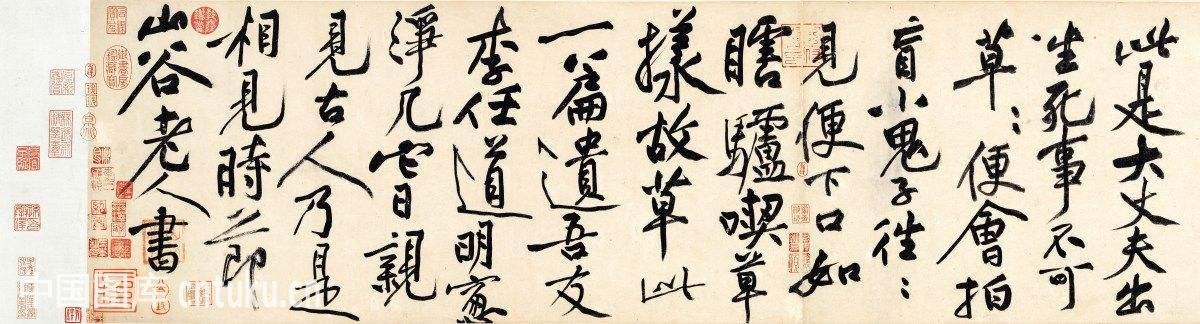 此是大丈夫出
生死事不可
草〻便會拍
盲小鬼子往〻
見便下口如
瞎驢喫草
樣故草此
一篇遺吾友
李任道明窻
淨几它日親
見古人乃是
相見時節
山谷老人書
中国图库 cntuku.cn